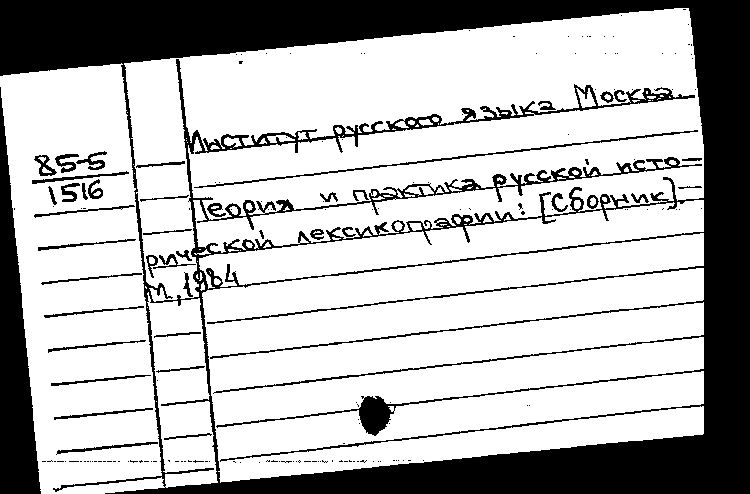 Институт русского языка. Москва.
85-5
1516
Теория и практика русской исто-
рической лексикографии: [Сборник].
М., 1984